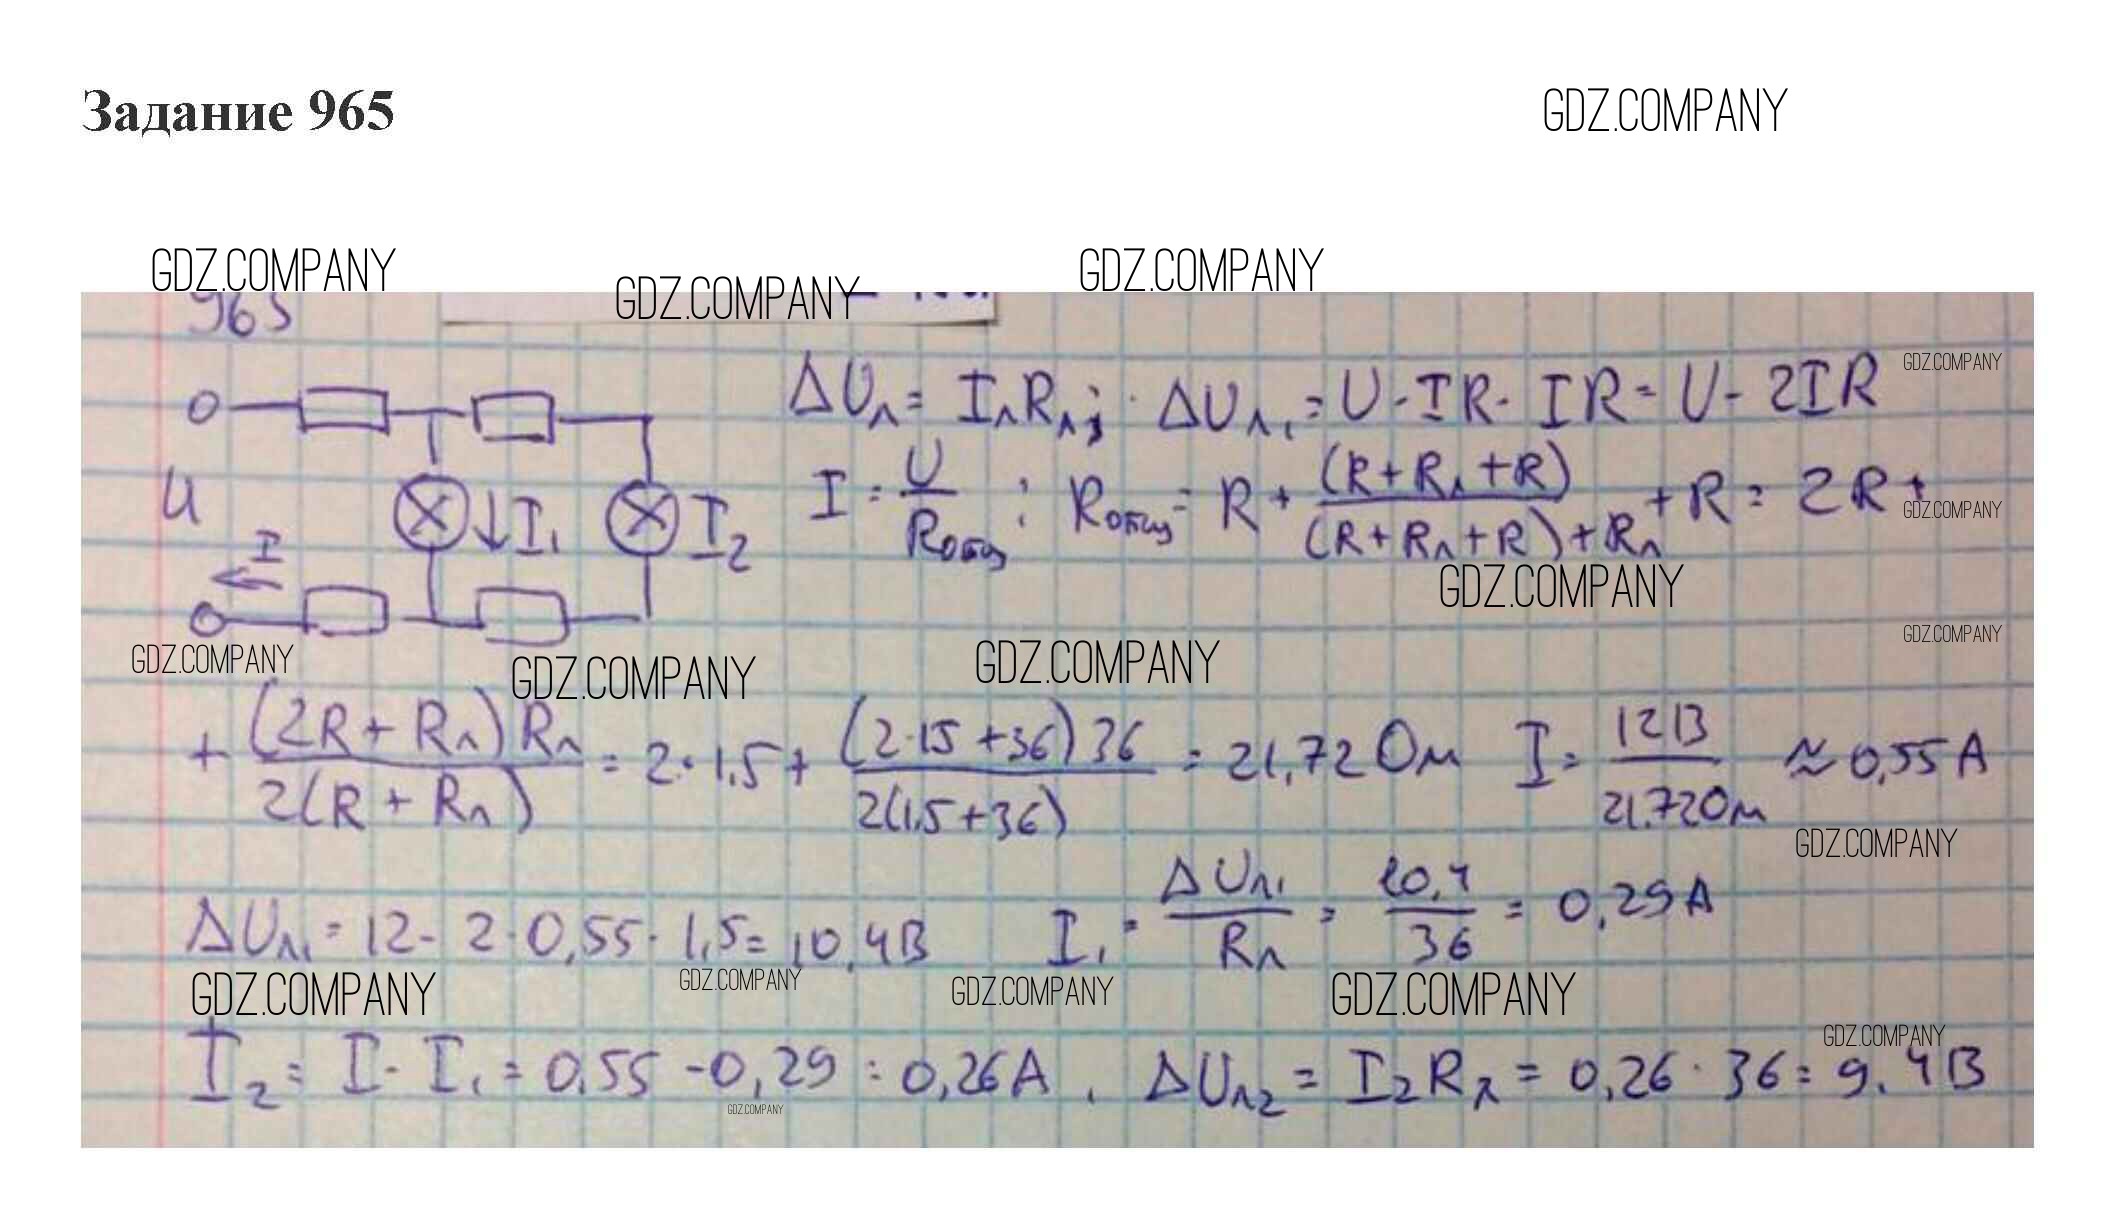 Задание 965
GDZ.COMPANY
GDZ.COMPANY
GDZ.COMPANY
GDZ.COMPANY
965
ΔUл = IлRл; ΔUл₁ = U - IR - IR = U - 2IR
GDZ.COMPANY
U
I
I₁
I₂
I = U/Rобщ ; Rобщ = R + (R + Rл + R)/((R + Rл + R) + Rл) + R = 2R +
GDZ.COMPANY
GDZ.COMPANY
GDZ.COMPANY
GDZ.COMPANY
GDZ.COMPANY
GDZ.COMPANY
+ (2R + Rл)Rл/2(R + Rл) = 2·1,5 + (2·15 + 36)36/2(1.5 + 36) = 21,72 Ом I = 12В/21.72Ом ≈ 0,55 А
GDZ.COMPANY
ΔUл₁ = 12 - 2·0,55·1,5 = 10,4В I₁ = ΔUл₁/Rл = 10,4/36 = 0,29А
GDZ.COMPANY
GDZ.COMPANY
GDZ.COMPANY
GDZ.COMPANY
GDZ.COMPANY
I₂ = I - I₁ = 0.55 - 0,29 = 0,26А, ΔUл2 = I₂Rл = 0,26·36 = 9.4В
GDZ.COMPANY